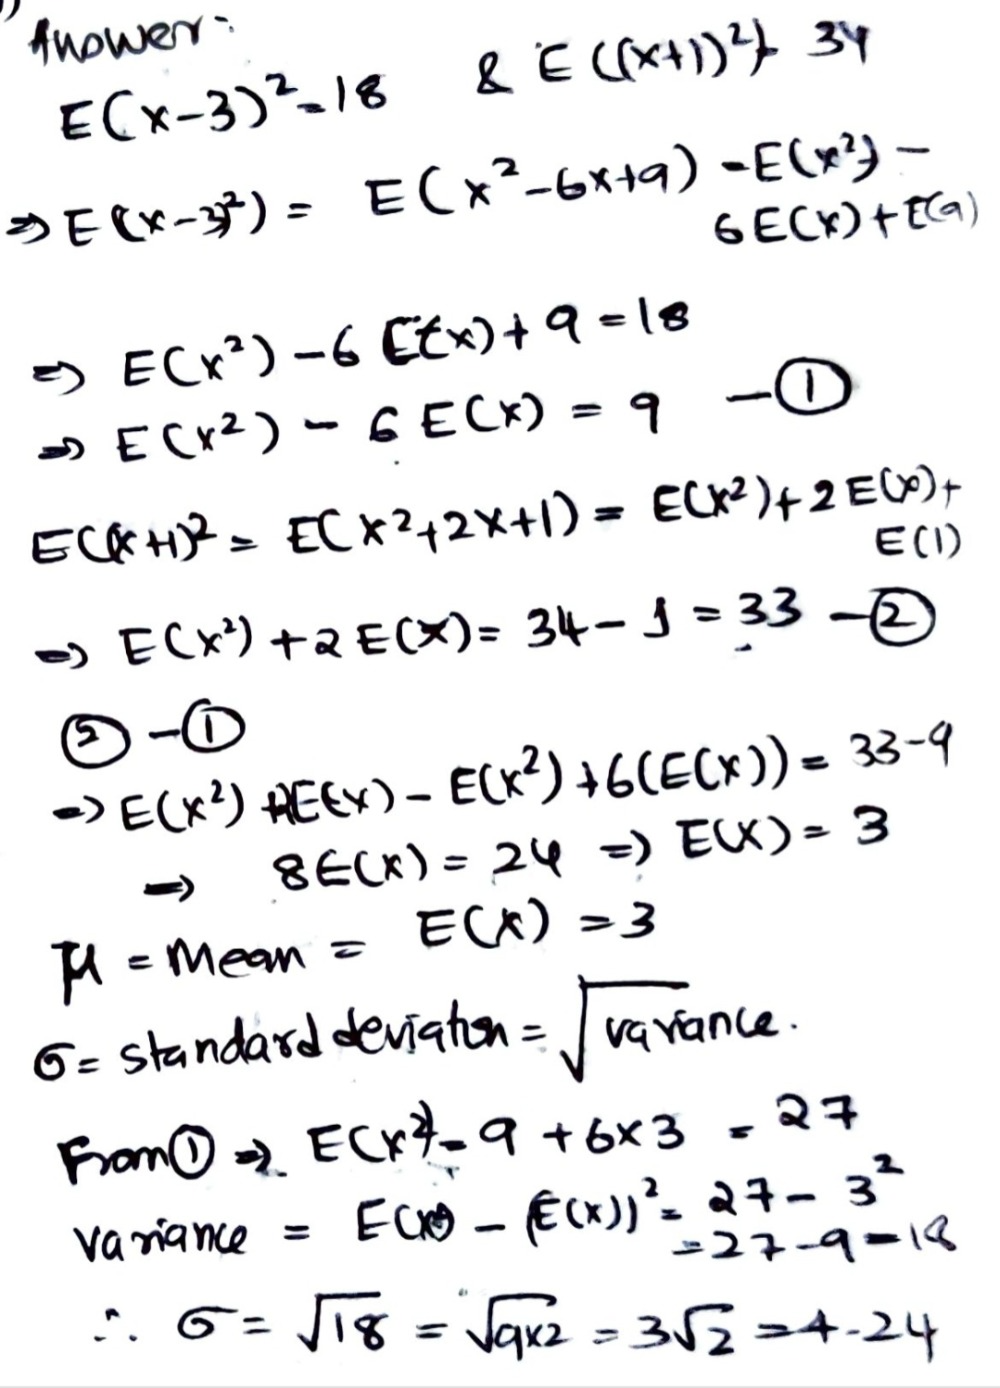 )
Answer:-
E(x-3)²=18 & E((x+1)²) = 34
⇒ E((x-3)²) = E(x²-6x+9) = E(x²) -
6E(x)+E(9)
⇒ E(x²) - 6 E(x) + 9 = 18
⇒ E(x²) - 6 E(x) = 9 - ①
E(x+1)² = E(x²+2x+1) = E(x²)+2E(x)+
E(1)
⇒ E(x²) + 2 E(x) = 34 - 1 = 33 - ②
② - ①
⇒ E(x²) + 2E(x) - E(x²) + 6(E(x)) = 33-9
⇒ 8E(x) = 24 ⇒ E(x) = 3
μ = Mean = E(x) = 3
σ = standard deviation = √variance.
From ① ⇒ E(x²) = 9 + 6×3 = 27
variance = E(x²) - (E(x))² = 27 - 3²
= 27 - 9 = 18
∴ σ = √18 = √9×2 = 3√2 = 4.24